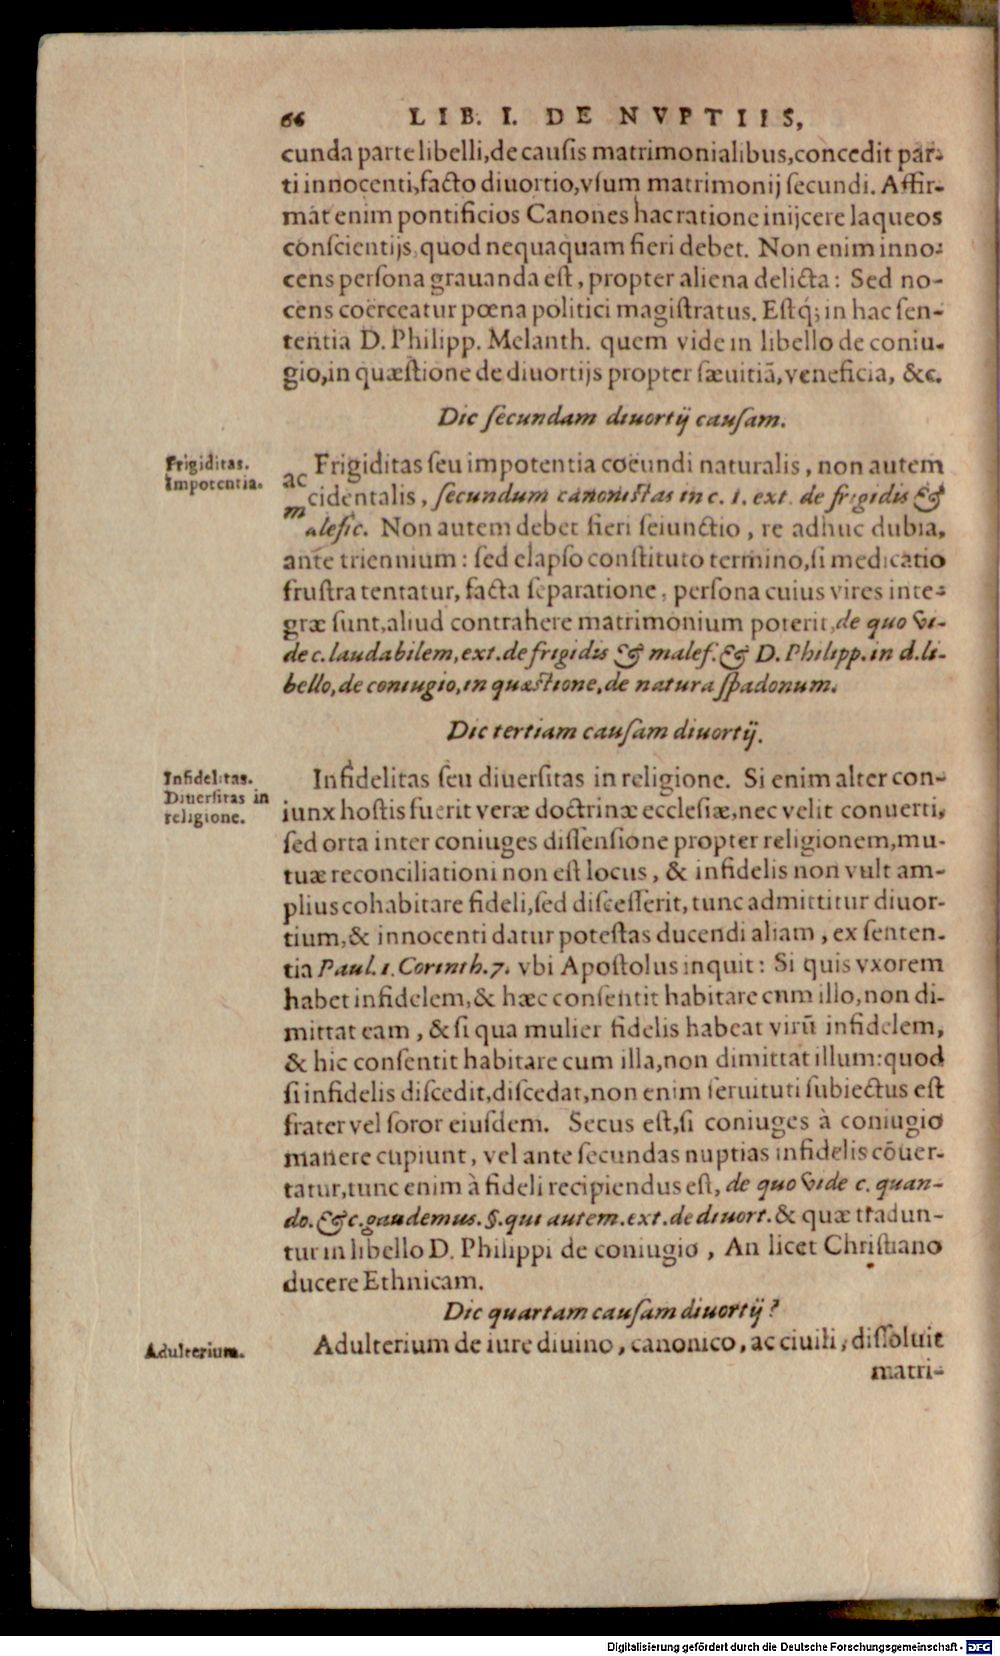 66 LIB. I. DE NVPTIIS,
cunda parte libelli, de causis matrimonialibus, concedit par-
ti innocenti, facto diuortio, vsum matrimonij secundi. Affir-
mat enim pontificios Canones hac ratione inijcere laqueos
conscientijs, quod nequaquam fieri debet. Non enim inno-
cens persona grauanda est, propter aliena delicta: Sed no-
cens coërceatur pœna politici magistratus. Estq́; in hac sen-
tentia D. Philipp. Melanth. quem vide in libello de coniu-
gio, in quæstione de diuortijs propter sæuitiã, veneficia, &c.
Dic secundam diuortij causam.
Frigiditas.
Impotentia.
Frigiditas seu impotentia coeundi naturalis, non autem
ac
cidentalis, secundum canonistas in c. 1. ext. de frigidis &
m
alefic. Non autem debet fieri seiunctio, re adhuc dubia,
ante triennium: sed elapso constituto termino, si medicatio
frustra tentatur, facta separatione, persona cuius vires inte-
græ sunt, aliud contrahere matrimonium poterit, de quo vi-
de c. laudabilem, ext. de frigidis & malef. & D. Philipp. in d. li-
bello, de coniugio, in quæstione, de natura spadonum.
Dic tertiam causam diuortij.
Infidelitas.
Diuersitas in
religione.
Infidelitas seu diuersitas in religione. Si enim alter con-
iunx hostis fuerit veræ doctrinæ ecclesiæ, nec velit conuerti,
sed orta inter coniuges dissensione propter religionem, mu-
tuæ reconciliationi non est locus, & infidelis non vult am-
plius cohabitare fideli, sed discesserit, tunc admittitur diuor-
tium, & innocenti datur potestas ducendi aliam, ex senten-
tia Paul. 1. Corinth. 7. vbi Apostolus inquit: Si quis vxorem
habet infidelem, & hæc consentit habitare cnm illo, non di-
mittat eam, & si qua mulier fidelis habeat virũ infidelem,
& hic consentit habitare cum illa, non dimittat illum: quod
si infidelis discedit, discedat, non enim seruituti subiectus est
frater vel soror eiusdem. Secus est, si coniuges à coniugio
manere cupiunt, vel ante secundas nuptias infidelis cõuer-
tatur, tunc enim à fideli recipiendus est, de quo vide c. quan-
do. & c. gaudemus. §. qui autem. ext. de diuort. & quæ tradun-
tur in libello D. Philippi de coniugio, An licet Christiano
ducere Ethnicam.
Dic quartam causam diuortij?
Adulterium.
Adulterium de iure diuino, canonico, ac ciuili, dissoluit
matri-
Digitalisierung gefördert durch die Deutsche Forschungsgemeinschaft - DFG